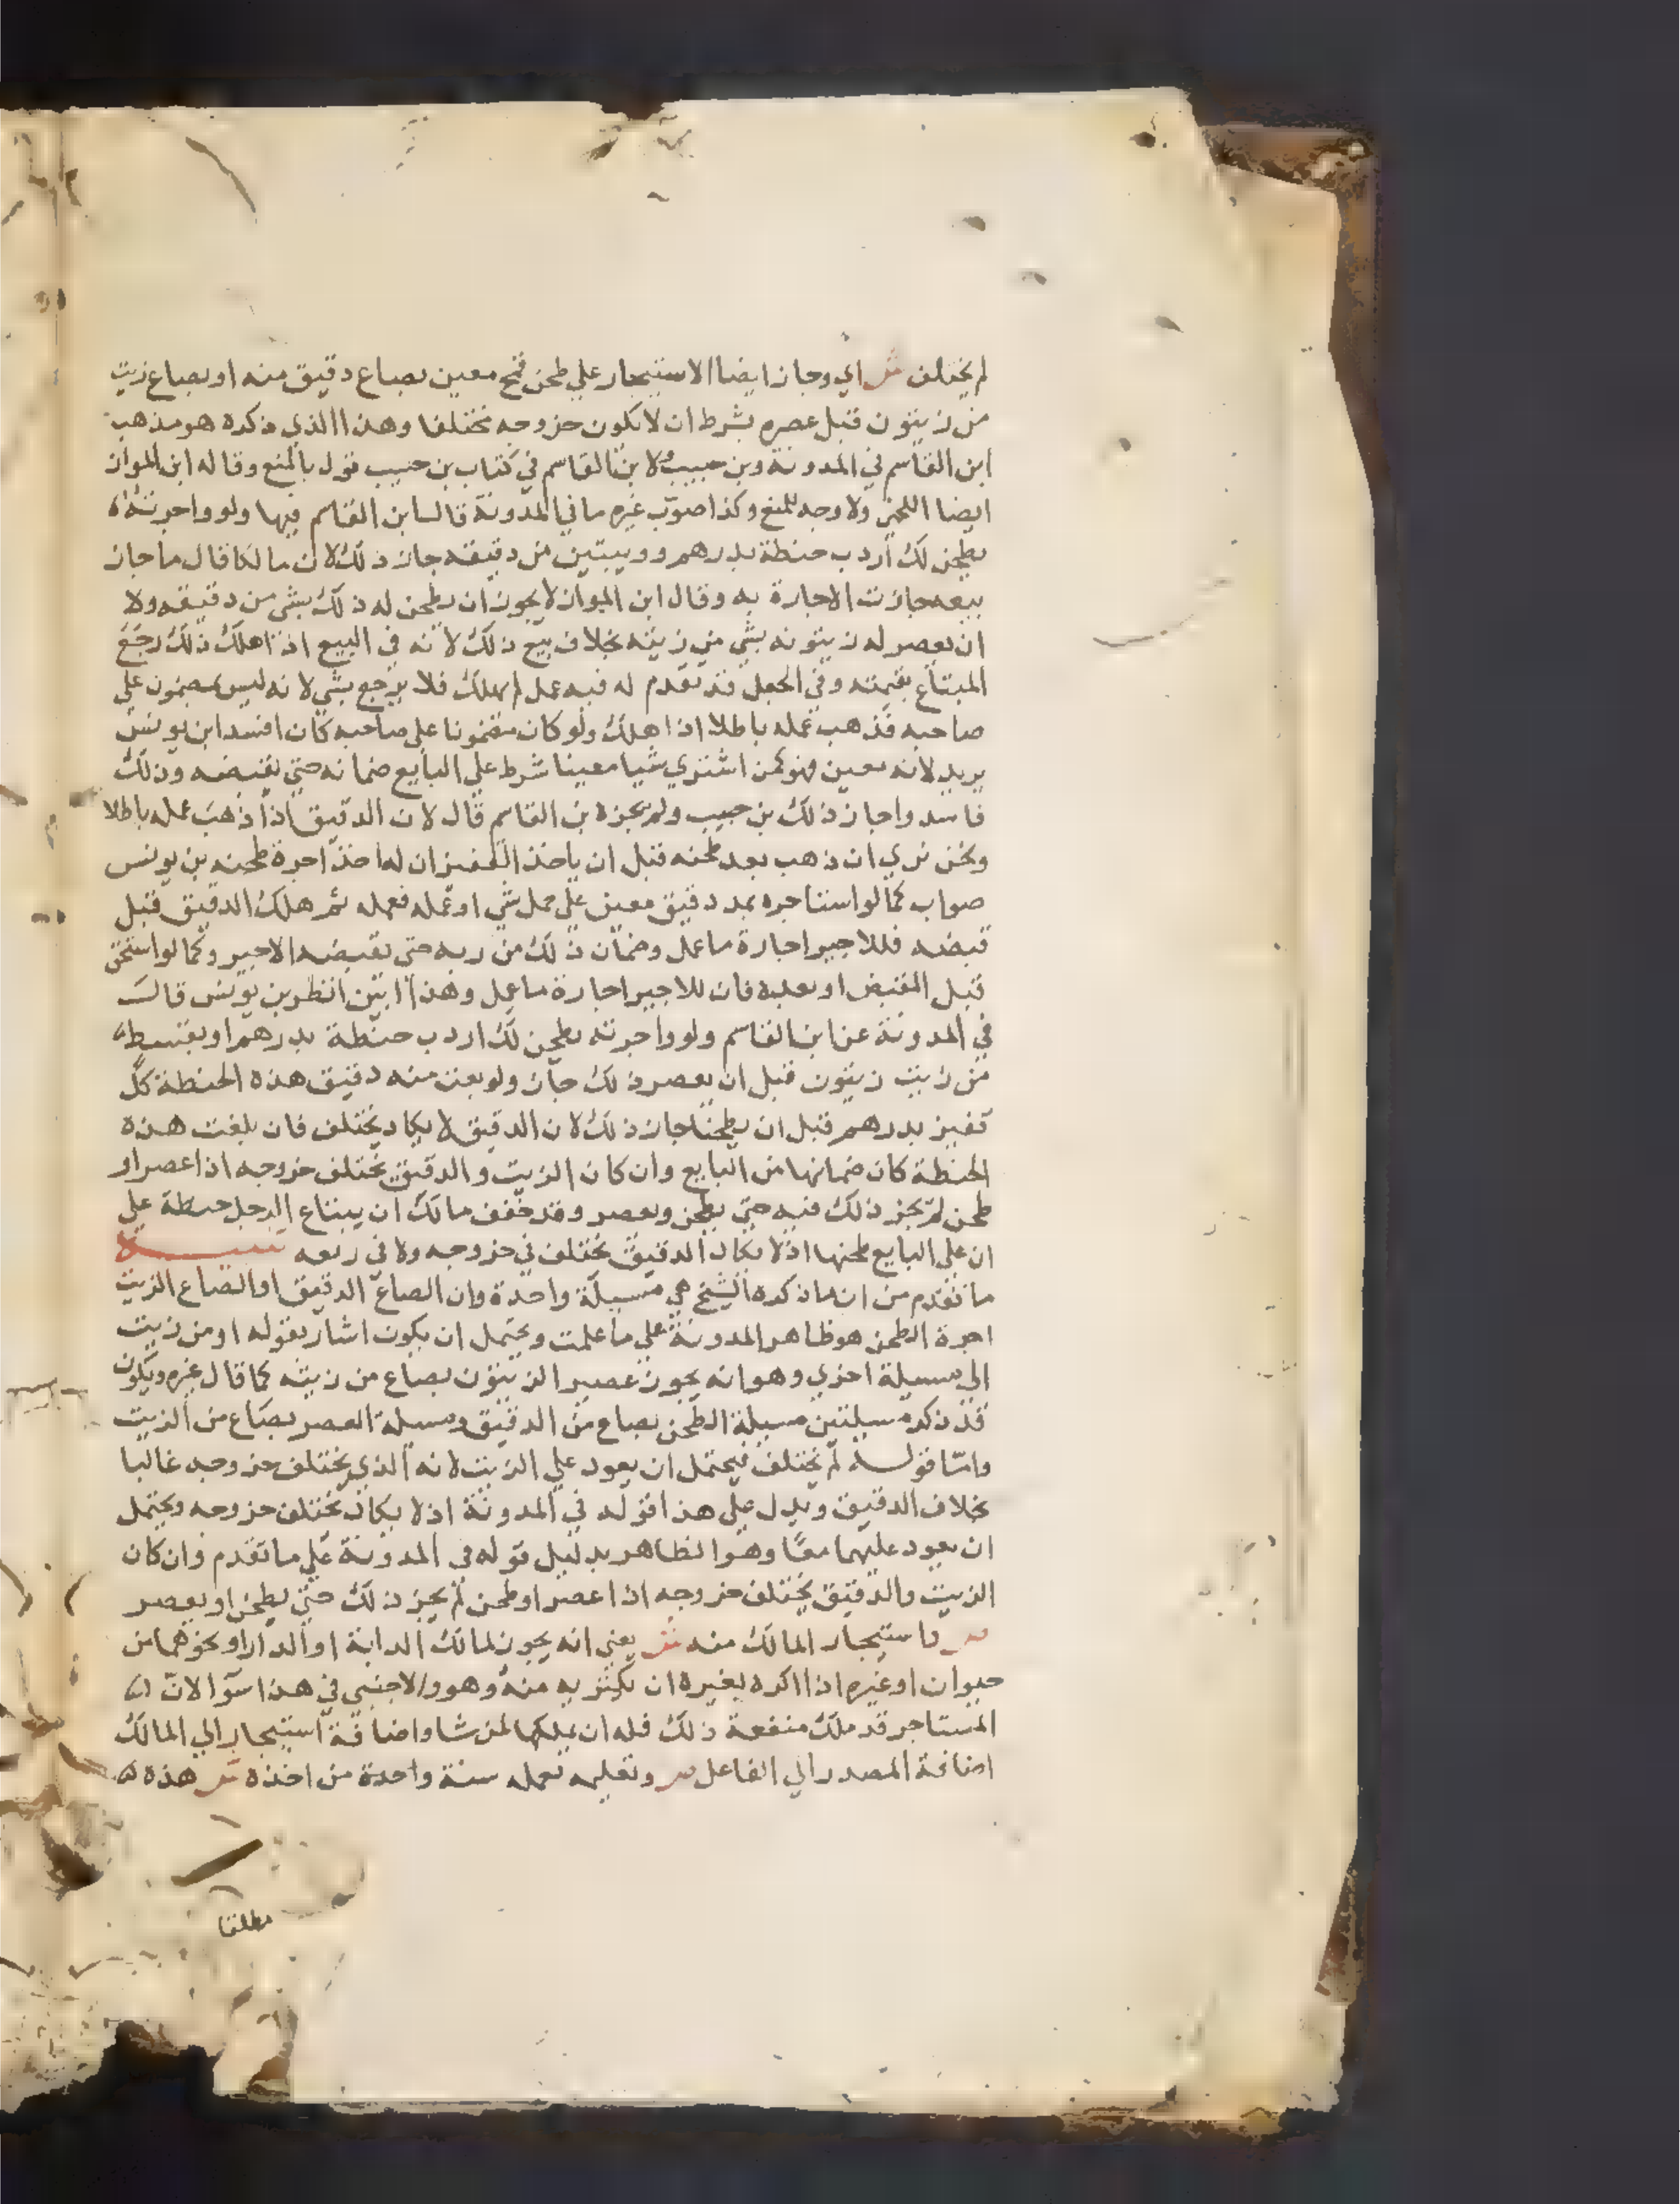 لم يختلف ش اي وجاز ايضا الاستيجار علي طحن قمح معين بصاع دقيق منه او بصاع زيت
من زيتون قبل عصره بشرط ان لا يكون خروجه مختلفا وهذا الذي ذكره هو مذهب
ابن القاسم في المدونة وبن حبيب ولابن القاسم في كتاب بن حبيب قول بالمنع وقاله ابن المواز
ايضا اللخمي ولا وجه للمنع وكذا صوب غيره ما في المدونة قال ابن القاسم فيها ولو واجرته
يطحن لك اردب حنطة بدرهم وويبتين من دقيقه جاز ذلك لان مالكا قال ما جاز
بيعه جازت الاجارة به وقال ابن المواز لا يجوز ان يطحن له ذلك بشي من دقيقه ولا
ان يعصر له زيتونه بشي من زيته بخلاف بيع ذلك لانه في البيع اذا هلك ذلك رجع
المبتاع بقيمته وفي الجعل قد تقدم له فيه عمل لم يهلك فلا يرجع بشي لانه ليس بمضمون علي
صاحبه فذهب عمله باطلا اذا هلك ولو كان مضمونا علي صاحبه كان افسد ابن يونس
يريد لانه معين فهو كمن اشتري شيا معينا شرط علي البايع ضمانه حتي يقبضه وذلك
فاسد واجاز ذلك بن حبيب ولم يجزه بن القاسم قال لان الدقيق اذا ذهب عمله باطلا
ونحن نري ان ذهب بعد طحنه قبل ان ياخذ القفيز ان له اخذ اجرة طحنه بن يونس
صواب كما لو استاجره بمد دقيق معين علي حمل شي او عمله فعمله ثم هلك الدقيق قبل
قبضه فللاجير اجارة ما عمل وضمان ذلك من ربه حتي يقبضه الاجير وكما لو استحق
قبل القبض او بعده فان للاجير اجارة ما عمل وهذا ابين انظر بن يونس قال
في المدونة عن ابن القاسم ولو واجرته يطحن لك اردب حنطة بدرهم او بقسط
من زيت زيتون قبل ان يعصر ذلك جاز ولو بعت منه دقيق هذه الحنطة كل
قفيز بدرهم قبل ان يطحنا جاز ذلك لان الدقيق لا يكاد يختلف فان بلغت هذه
الحنطة كان ضمانها من البايع وان كان الزيت والدقيق يختلف خروجه اذا عصر او
طحن لم يجز ذلك فيه حتي يطحن ويعصر وقد خفف مالك ان يبتاع الرجل حنطة علي
ان علي البايع طحنها اذ لا يكاد الدقيق يختلف في خروجه ولا في ريعه
ما تقدم من ان ما ذكره الشيخ هي مسيلة واحدة وان الصاع الدقيق او الصاع الزيت
اجرة الطحن هو ظاهر المدونة علي ما علمت ويحتمل ان يكون اشار بقوله او من زيت
الي مسيلة اخري وهو انه يجوز عصير الزيتون بصاع من زيته كما قال غيره ويكون
قد ذكر مسيلتين مسيلة الطحن بصاع من الدقيق ومسيلة العصر بصاع من الزيت
واما قوله لم يختلف فيحتمل ان يعود علي الزيت لانه الذي يختلف خروجه غالبا
بخلاف الدقيق ويدل علي هذا قوله في المدونة اذ لا يكاد يختلف خروجه ويحتمل
ان يعود عليهما معا وهو الظاهر بدليل قوله في المدونة علي ما تقدم وان كان
الزيت والدقيق يختلف خروجه اذا عصر او طحن لم يجز ذلك حتي يطحن او يعصر
ص واستيجار المالك منه ش يعني انه يجوز لمالك الدابة او الدار او نحوهما من
حيوان او غيره اذا اكره لغيره ان يكتريه منه وهو والاجنبي في هذا سوا لان
المستاجر قد ملك منفعة ذلك فله ان يملكها لمن شا واضافة استيجار الي المالك
اضافة المصدر الي الفاعل ص وتعليمه بعمله سنة واحدة من اخذه ش هذه
مطلقا